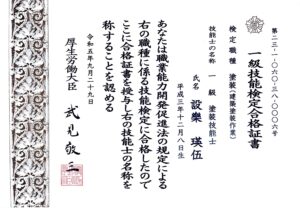 第二三-〇六〇-三八-〇〇〇六号
一級技能検定合格証書
検定職種 塗装(建築塗装作業)
技能士の名称 一級塗装技能士
平成三年十二月八日生
氏名 設樂 瑛伍
あなたは職業能力開発促進法の規定による
右の職種に係る技能検定に合格したので
ここに合格証書を授与し右の技能士の名称を
称することを認める
令和五年九月二十九日
厚生労働大臣 武見敬三